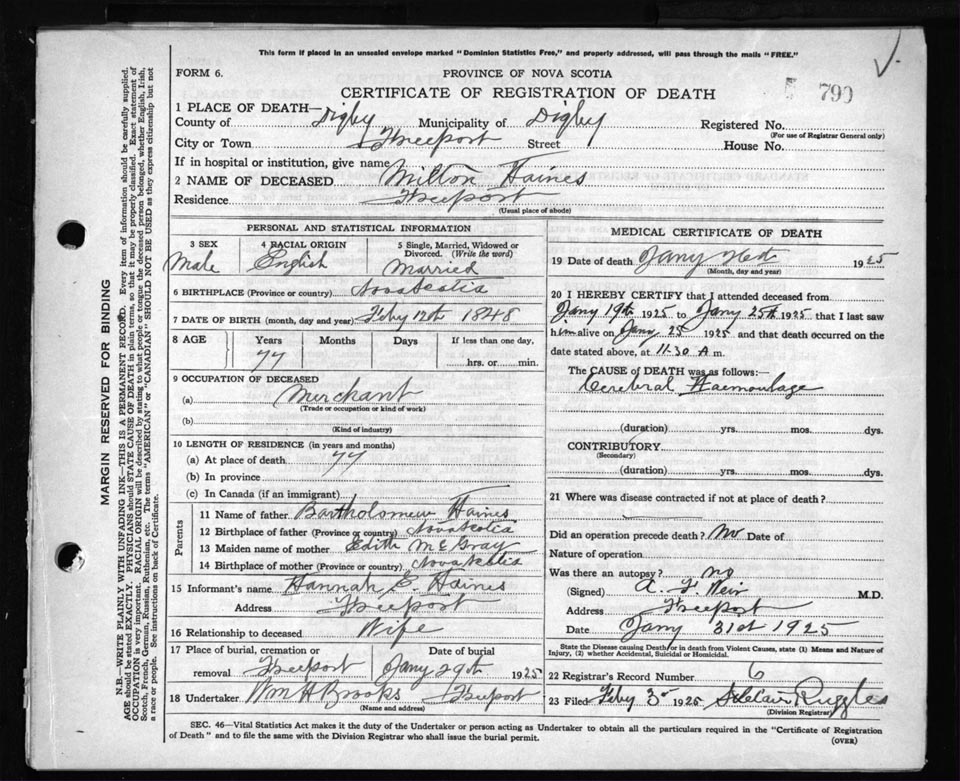 This form if placed in an unsealed envelope marked "Dominion Statistics Free," and properly addressed, will pass through the mails "FREE."
FORM 6.
PROVINCE OF NOVA SCOTIA
CERTIFICATE OF REGISTRATION OF DEATH
790
1 PLACE OF DEATH—
County of Digby Municipality of Digby Registered No.
(For use of Registrar General only)
City or Town Freeport Street House No.
If in hospital or institution, give name
2 NAME OF DECEASED Milton Haines
Residence Freeport
(Usual place of abode)
PERSONAL AND STATISTICAL INFORMATION
3 SEX 4 RACIAL ORIGIN 5 Single, Married, Widowed or Divorced. (Write the word)
Male English Married
6 BIRTHPLACE (Province or country) Nova Scotia
7 DATE OF BIRTH (month, day and year) Feby 12th 1848
8 AGE Years Months Days If less than one day,
77 hrs. or min.
9 OCCUPATION OF DECEASED
(a) Merchant
(Trade or occupation or kind of work)
(b)
(Kind of industry)
10 LENGTH OF RESIDENCE (in years and months)
(a) At place of death 77
(b) In province
(c) In Canada (if an immigrant)
Parents
11 Name of father Bartholomew Haines
12 Birthplace of father (Province or country) Nova Scotia
13 Maiden name of mother Edith McGray
14 Birthplace of mother (Province or country) Nova Scotia
15 Informant's name Hannah E Haines
Address Freeport
16 Relationship to deceased Wife
17 Place of burial, cremation or removal Freeport Date of burial Jany 29th 1925
18 Undertaker Wm H Brooks Freeport
(Name and address)
MEDICAL CERTIFICATE OF DEATH
19 Date of death Jany 1925
(Month, day and year)
20 I HEREBY CERTIFY that I attended deceased from
Jany 19th 1925 to Jany 25th 1925 that I last saw
him alive on Jany 25 1925 and that death occurred on the
date stated above, at 11-30 A m.
The CAUSE OF DEATH was as follows:—
Cerebral Haemorrhage
(duration) yrs. mos. dys.
CONTRIBUTORY
(Secondary)
(duration) yrs. mos. dys.
21 Where was disease contracted if not at place of death?
Did an operation precede death? No Date of
Nature of operation
Was there an autopsy? no
(Signed) A. F. Weir M.D.
Address Freeport
Date Jany 31st 1925
State the Disease causing Death or in death from Violent Causes, state (1) Means and Nature of
Injury, (2) whether Accidental, Suicidal or Homicidal.
22 Registrar's Record Number 6
23 Filed Feby 3 1925 St Clair Ruggles
(Division Registrar)
SEC. 46—Vital Statistics Act makes it the duty of the Undertaker or person acting as Undertaker to obtain all the particulars required in the "Certificate of Registration
of Death" and to file the same with the Division Registrar who shall issue the burial permit.
(OVER)
MARGIN RESERVED FOR BINDING
N.B.—WRITE PLAINLY WITH UNFADING INK—THIS IS A PERMANENT RECORD. Every item of information should be carefully supplied.
AGE should be stated EXACTLY. PHYSICIANS should STATE CAUSE OF DEATH in plain terms, so that it may be properly classified. Exact statement of
OCCUPATION is very important. RACIAL ORIGIN will be described by stating to what people or tongue the deceased person belonged, whether English, Irish,
Scotch, French, German, Russian, Ruthenian, etc. The terms "AMERICAN" or "CANADIAN" SHOULD NOT BE USED as they express citizenship but not
a race or people. See instructions on back of Certificate.